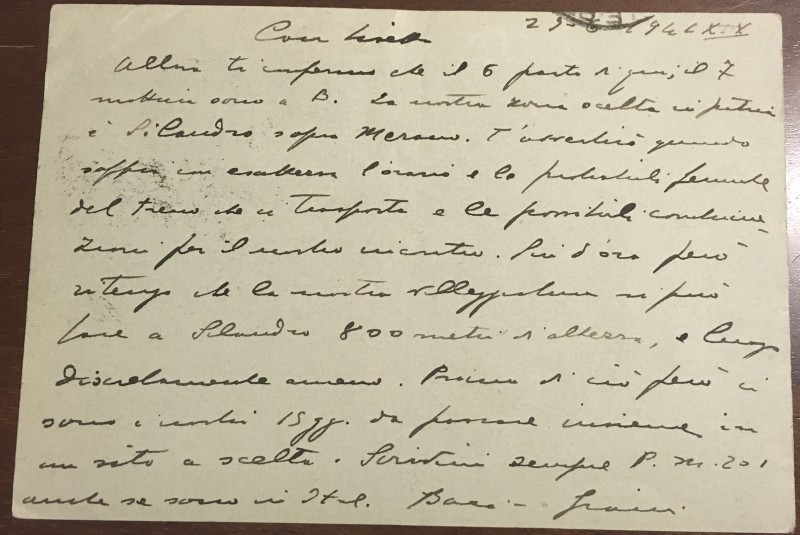 29-6-1941 XIX
Cara
Allora ti informo che il 6 parto di qui, il 7
mattina sono a B. La nostra zona scelta in
è Silandro sopra Merano. T'avvertirò quando
saprò, con esattezza l'orario e le probabili fermate
del treno che ci trasporta e le possibili combina-
zioni per il nostro incontro. Sin d'ora però
ritengo che la nostra villeggiatura si può
fare a Silandro 800 metri d'altezza, e luogo
discretamente ameno. Prima di ciò però ci
sono i nostri 15 gg. da passare insieme in
un sito a scelta. Scrivimi sempre P.M. 201
anche se sono in Ital. Baci -